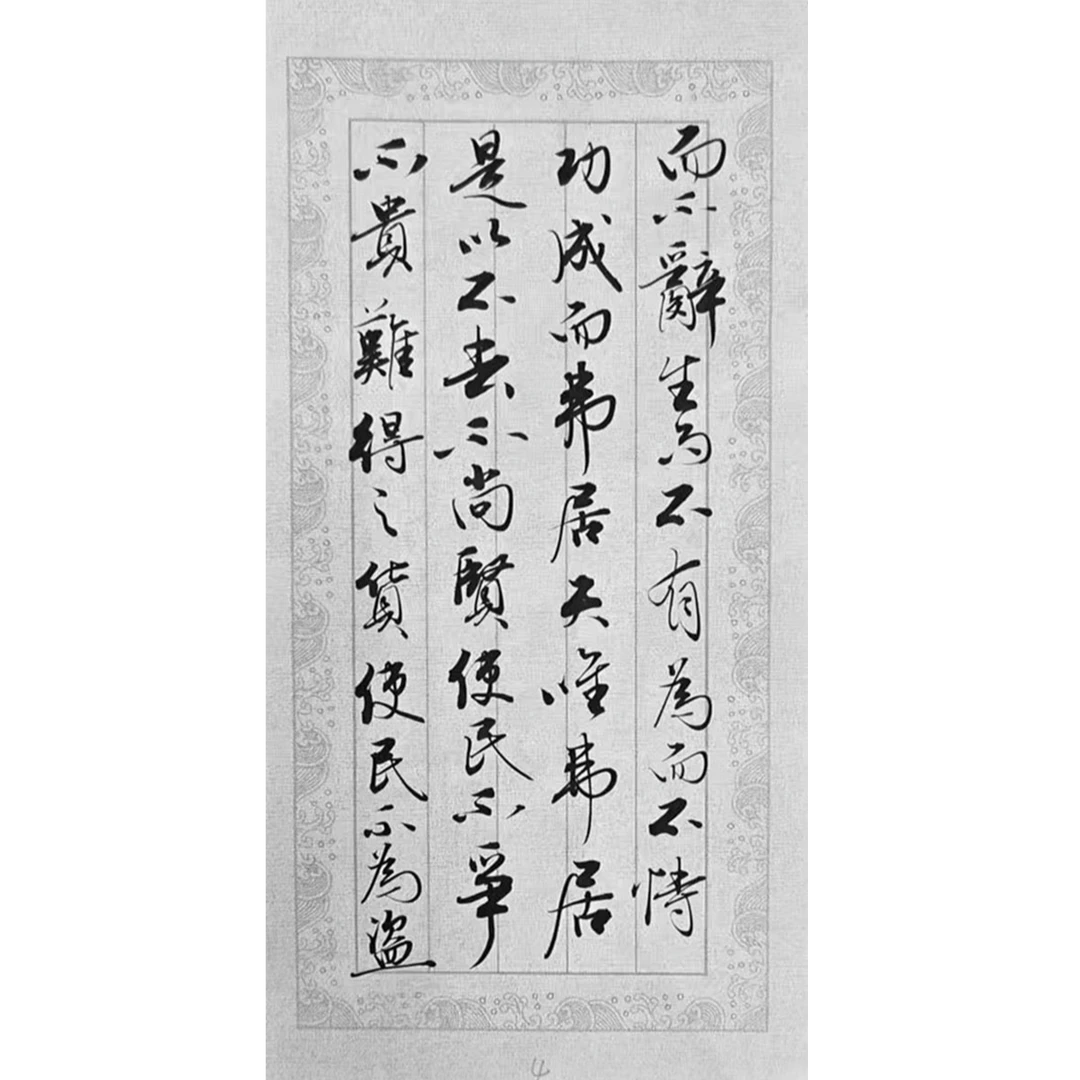 而不辭生而不有為而不恃
功成而弗居夫唯弗居
是以不去不尚賢使民不爭
不貴難得之貨使民不為盜
4